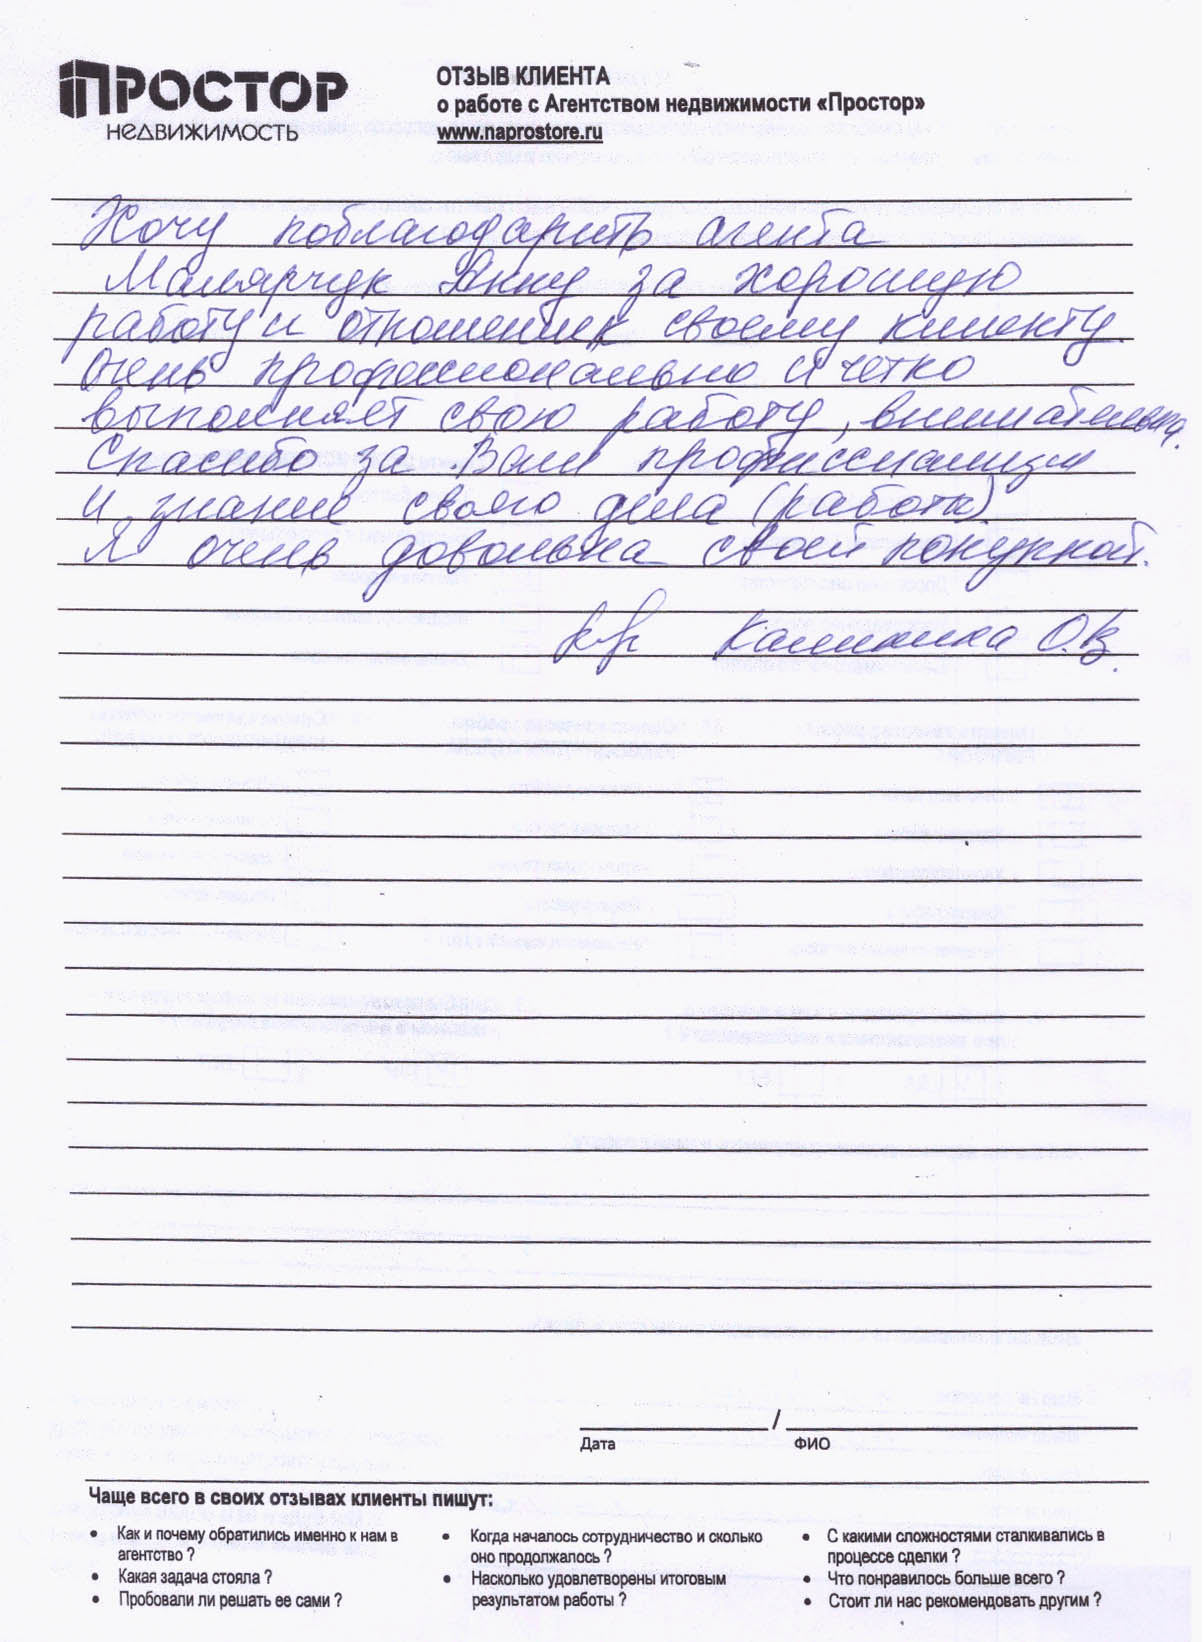 ПРОСТОР
НЕДВИЖИМОСТЬ
ОТЗЫВ КЛИЕНТА
о работе с Агентством недвижимости «Простор»
www.naprostore.ru
Хочу поблагодарить агента
Малярчук Анну за хорошую
работу и отношение к своему клиенту.
Очень профессионально и четко
выполняет свою работу, внимательна.
Спасибо за Ваш профиссиализм
и знание своего дела (работы).
Я очень довольна своей покупкой.
Калинина О.В.
/
Дата ФИО
Чаще всего в своих отзывах клиенты пишут:
• Как и почему обратились именно к нам в
агентство ?
• Какая задача стояла ?
• Пробовали ли решать ее сами ?
• Когда началось сотрудничество и сколько
оно продолжалось ?
• Насколько удовлетворены итоговым
результатом работы ?
• С какими сложностями сталкивались в
процессе сделки ?
• Что понравилось больше всего ?
• Стоит ли нас рекомендовать другим ?